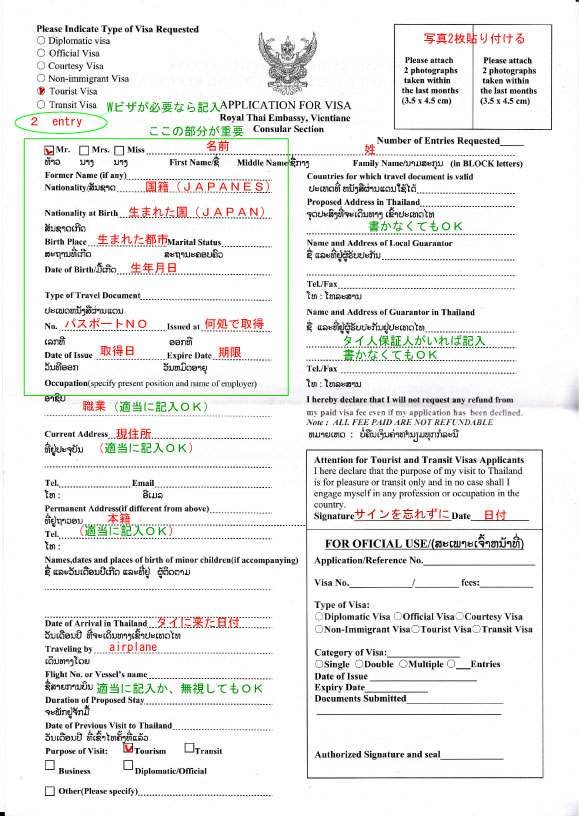 Please Indicate Type of Visa Requested
Diplomatic visa
Official Visa
Courtesy Visa
Non-immigrant Visa
Tourist Visa
Transit Visa
Wビザが必要なら記入
2 entry
ここの部分が重要
APPLICATION FOR VISA
Royal Thai Embassy, Vientiane
Consular Section
写真2枚貼り付ける
Please attach
2 photographs
taken within
the last months
(3.5 x 4.5 cm)
Please attach
2 photographs
taken within
the last months
(3.5 x 4.5 cm)
Number of Entries Requested
Mr. Mrs. Miss 名前 姓
ທ້າວ ນາງ ນາງ First Name/ຊື່ Middle Name/ຊື່ກາງ Family Name/ນາມສະກຸນ (in BLOCK letters)
Former Name (if any)
Nationality/ສັນຊາດ 国籍(JAPANES)
Nationality at Birth 生まれた国(JAPAN)
ສັນຊາດເກີດ
Birth Place 生まれた都市 Marital Status
ສະຖານທີ່ເກີດ ສະຖານະຄອບຄົວ
Date of Birth/ມື້ເກີດ 生年月日
Type of Travel Document
ປະເພດຫນັງສືຜ່ານແດນ
No. パスポートNO Issued at 何処で取得
ເລກທີ ອອກທີ່
Date of Issue 取得日 Expire Date 期限
ວັນທີອອກ ວັນຫມົດອາຍຸ
Occupation(specify present position and name of employer)
ອາຊີບ
職業(適当に記入OK)
Current Address 現住所
ທີ່ຢູ່ປະຈຸບັນ (適当に記入OK)
Tel. Email
ໂທ : ອີເມລ
Permanent Address(if different from above)
ທີ່ຢູ່ຖາວອນ 本籍
Tel. (適当に記入OK)
ໂທ :
Names,dates and places of birth of minor children(if accompanying)
ຊື່ ແລະວັນເດືອນປີເກີດ ແລະທີ່ຢູ່ ຜູ້ຕິດຕາມ
Date of Arrival in Thailand タイに来た日付
ວັນເດືອນປີ ທີ່ຈະເດີນທາງເຂົ້າປະເທດໄທ
Traveling by airplane
ເດີນທາງໂດຍ
Flight No. or Vessel's name
ຊື່ສາຍການບິນ 適当に記入か、無視してもOK
Duration of Proposed Stay
ຈະພັກຢູ່ຈັກມື້
Date of Previous Visit to Thailand
ວັນເດືອນປີ ທີ່ເຂົ້າໄທຄັ້ງທີ່ແລ້ວ
Purpose of Visit: Tourism Transit
Business Diplomatic/Official
Other(Please specify)
Countries for which travel document is valid
ປະເທດທີ່ ຫນັງສືຜ່ານແດນໃຊ້ໄດ້
Proposed Address in Thailand
ຈຸດປະສົງທີ່ຈະເດີນທາງ ເຂົ້າປະເທດໄທ
書かなくてもOK
Name and Address of Local Guarantor
ຊື່ ແລະທີ່ຢູ່ຜູ້ຮັບປະກັນ
Tel./Fax
ໂທ : ໂທລະສານ
Name and Address of Guarantor in Thailand
ຊື່ ແລະທີ່ຢູ່ຜູ້ຮັບປະກັນຢູ່ປະເທດໄທ
タイ人保証人がいれば記入
書かなくてもOK
Tel./Fax
ໂທ : ໂທລະສານ
I hereby declare that I will not request any refund from
my paid visa fee even if my application has been declined.
Note : ALL FEE PAID ARE NOT REFUNDABLE
ຫມາຍເຫດ : ບໍ່ຄືນເງິນຄ່າທຳນຽມທຸກກໍລະນີ
Attention for Tourist and Transit Visas Applicants
I here declare that the purpose of my visit to Thailand
is for pleasure or transit only and in no case shall I
engage myself in any profession or occupation in the
country.
Signature サインを忘れずに Date 日付
FOR OFICIAL USE/(ສະເພາະເຈົ້າຫນ້າທີ່)
Application/Reference No.
Visa No. / fees:
Type of Visa:
Diplomatic Visa Official Visa Courtesy Visa
Non-Immigrant Visa Tourist Visa Transit Visa
Category of Visa:
Single Double Multiple Entries
Date of Issue
Expiry Date
Documents Submitted
Authorized Signature and seal